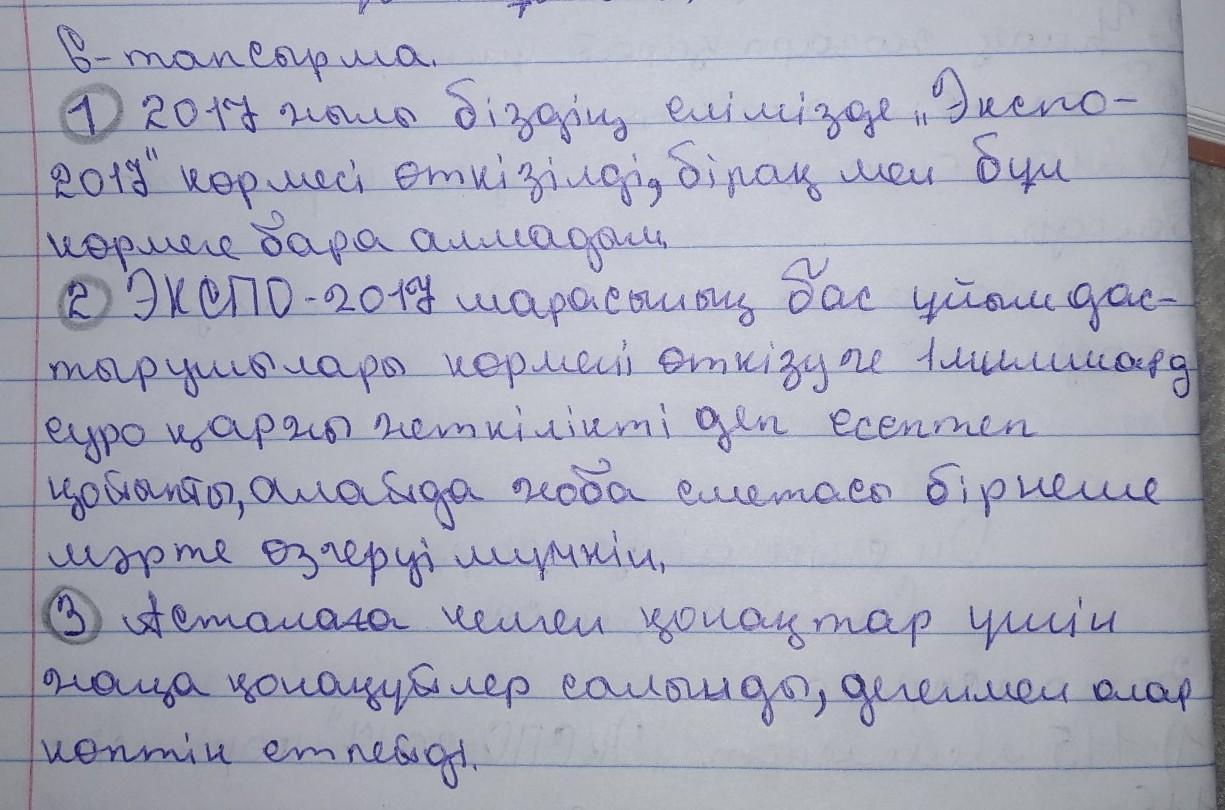 6-тапсырма.
① 2017 жылы біздің елімізде „Экспо-
2017" көрмесі өткізілді, бірақ мен бұл
көрмеге бара алмадым.
② ЭКСПО-2017 шарасының бас ұйымдас-
тырушылары көрмені өткізуге 1миллиард
еуро қаржы жеткілікті деп есептеп
қойыпты, алайда жоба сметасы бірнеше
мәрте өзгеруі мүмкін.
③ Астанаға келген қонақтар үшін
жаңа қонақүйлер салынды, дегенмен олар
көптік етпейді.